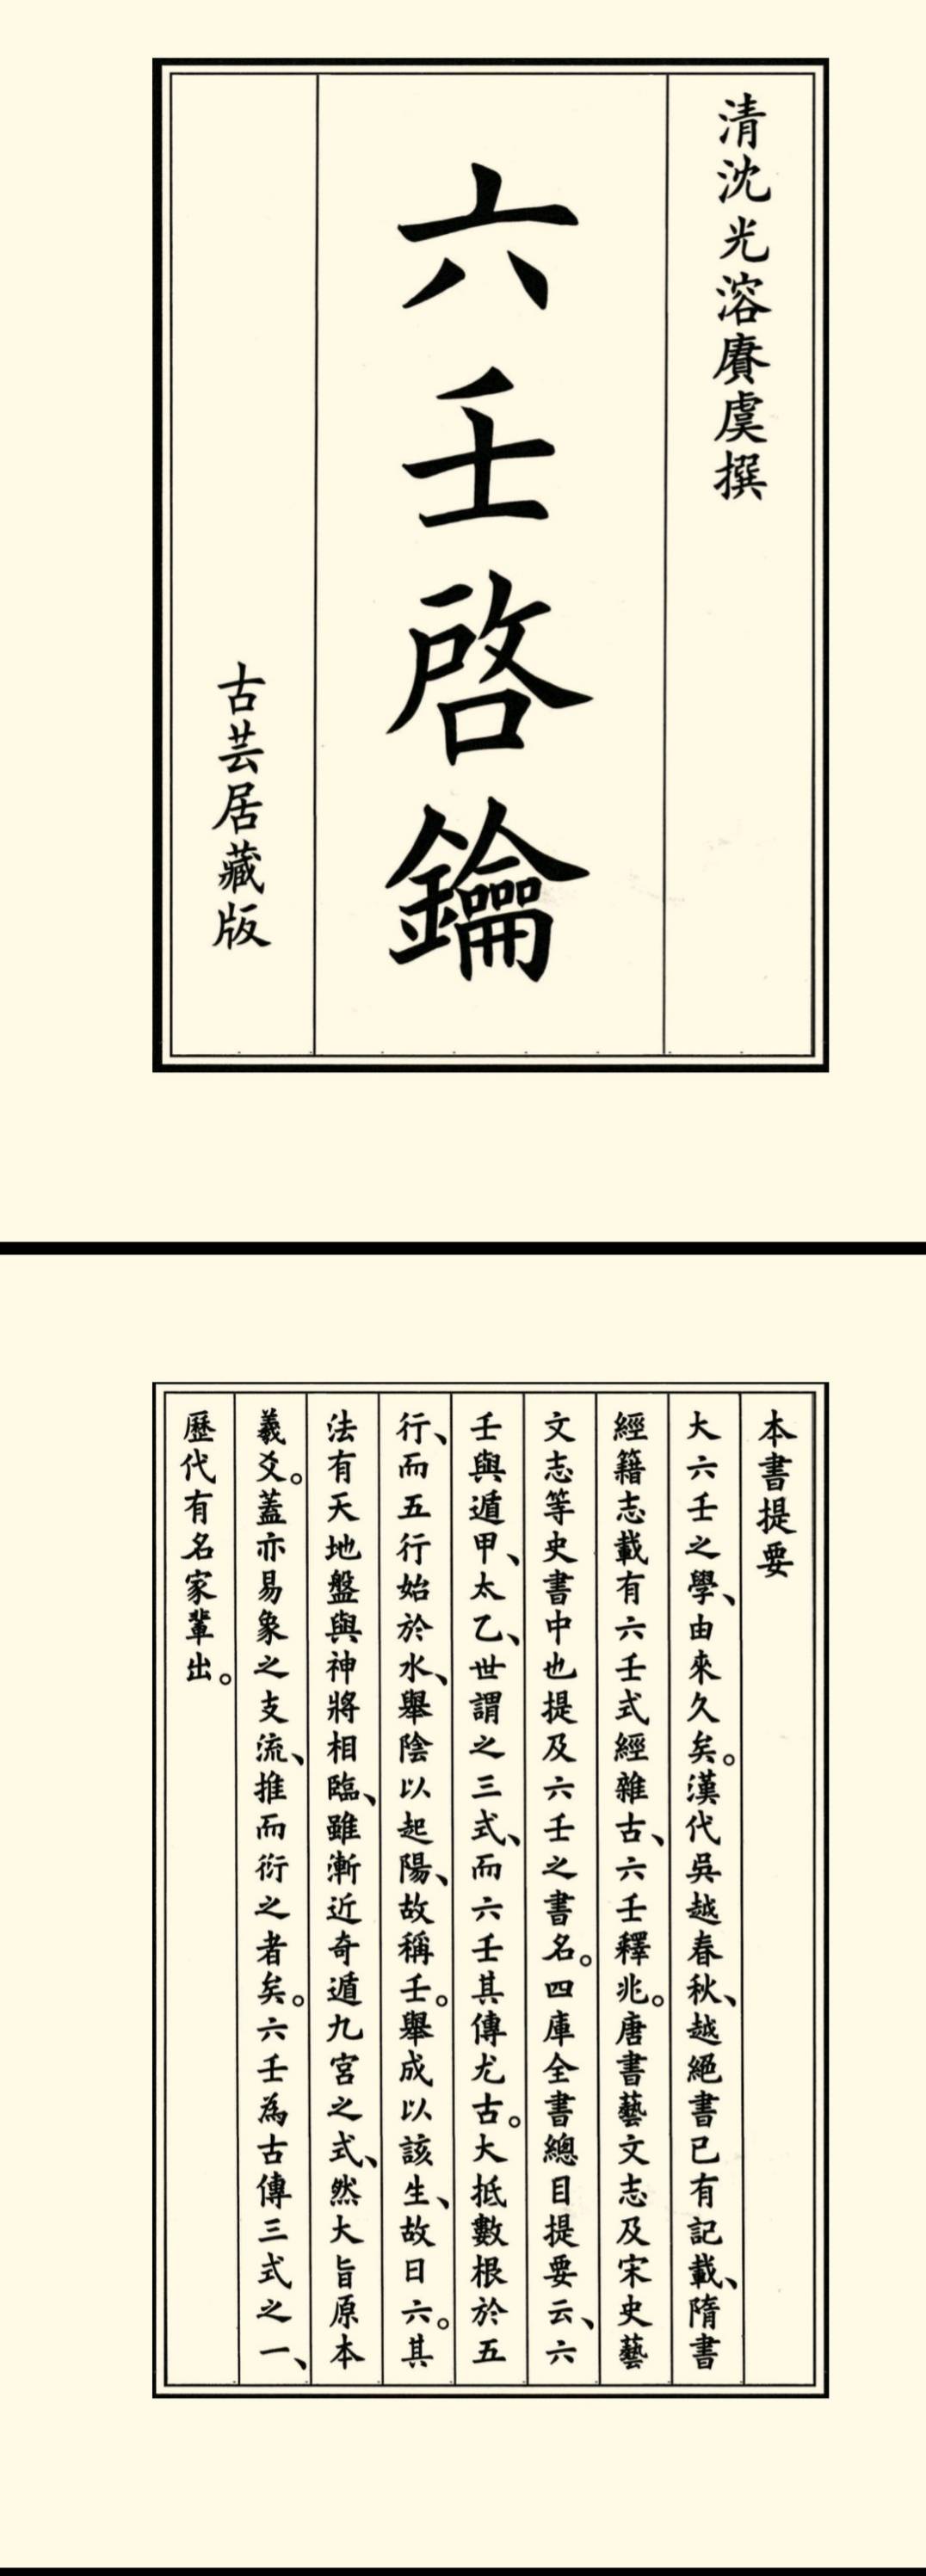 清沈光溶賡虞撰
六壬啓鑰
古芸居藏版
本書提要
大六壬之學、由來久矣。漢代吳越春秋、越絕書已有記載、隋書
經籍志載有六壬式經雜古、六壬釋兆。唐書藝文志及宋史藝
文志等史書中也提及六壬之書名。四庫全書總目提要云、六
壬與遁甲、太乙、世謂之三式、而六壬其傳尤古。大抵數根於五
行、而五行始於水、舉陰以起陽、故稱壬。舉成以該生、故曰六。其
法有天地盤與神將相臨、雖漸近奇遁九宮之式、然大旨原本
羲爻。蓋亦易象之支流、推而衍之者矣。六壬為古傳三式之一、
歷代有名家輩出。